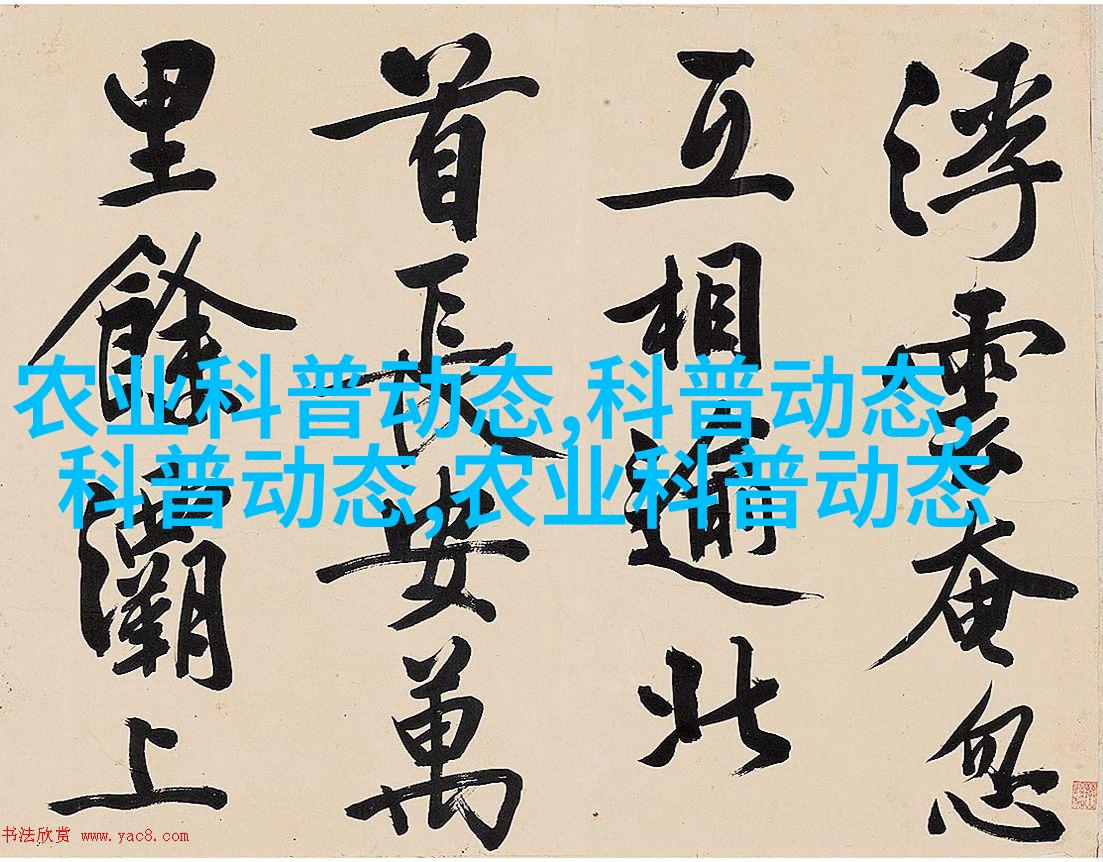 浮雲奄忽
互相北
首長安萬
里餘灞上
农业科普动态,科普动态,
科普动态,农业科普动态
书法欣赏 www.yac8.com